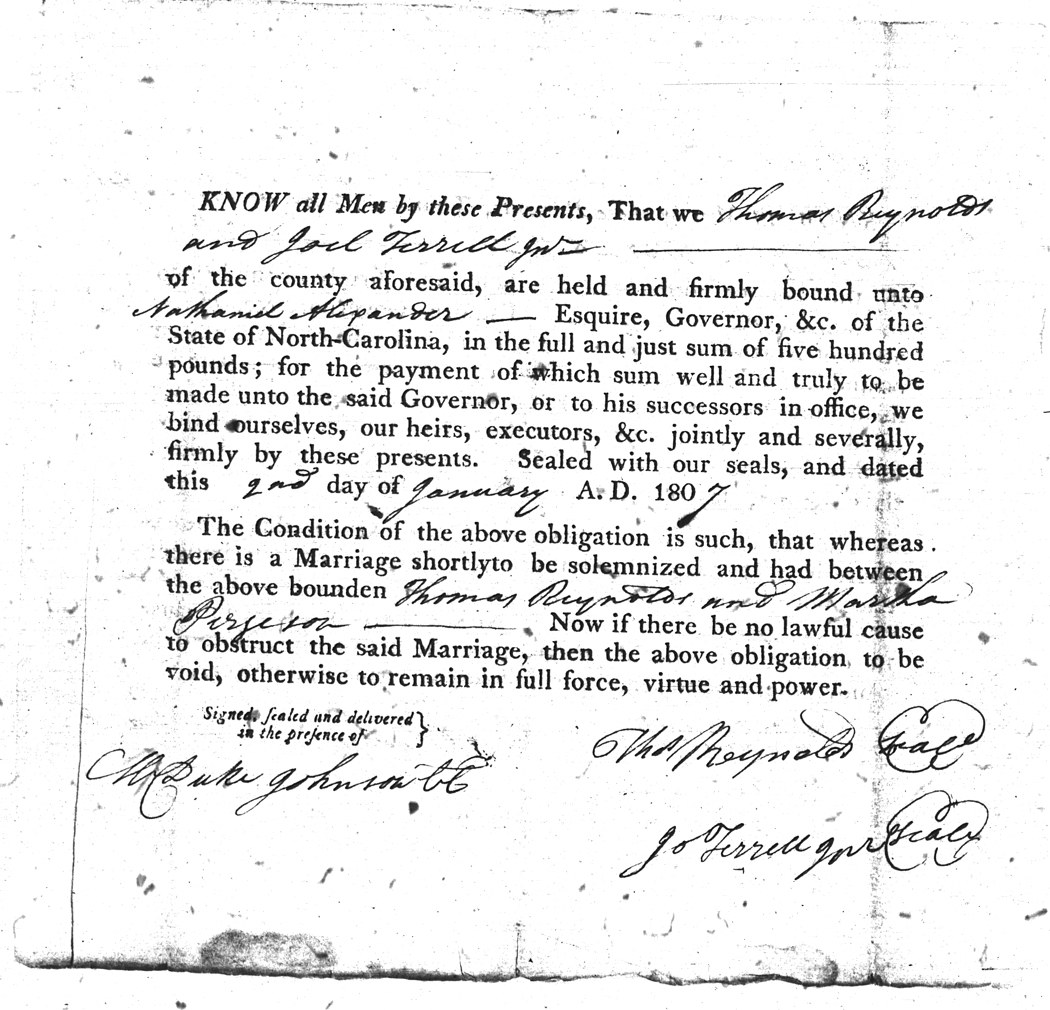 KNOW all Men by these Presents, That we Thomas Reynolds
and Joel Terrell Jnr
of the county aforesaid, are held and firmly bound unto
Nathaniel Alexander — Esquire, Governor, &c. of the
State of North-Carolina, in the full and just sum of five hundred
pounds; for the payment of which sum well and truly to be
made unto the said Governor, or to his successors in office, we
bind ourselves, our heirs, executors, &c. jointly and severally,
firmly by these presents. Sealed with our seals, and dated
this 2nd day of January A. D. 1807
The Condition of the above obligation is such, that whereas
there is a Marriage shortlyto be solemnized and had between
the above bounden Thomas Reynolds and Martha
Pirgeson — Now if there be no lawful cause
to obstruct the said Marriage, then the above obligation to be
void, otherwise to remain in full force, virtue and power.
Signed, ſealed and delivered }
in the preſence of
Thos Reynolds Seal
M Duke Johnson CC
Jo Terrell Jnr Seal